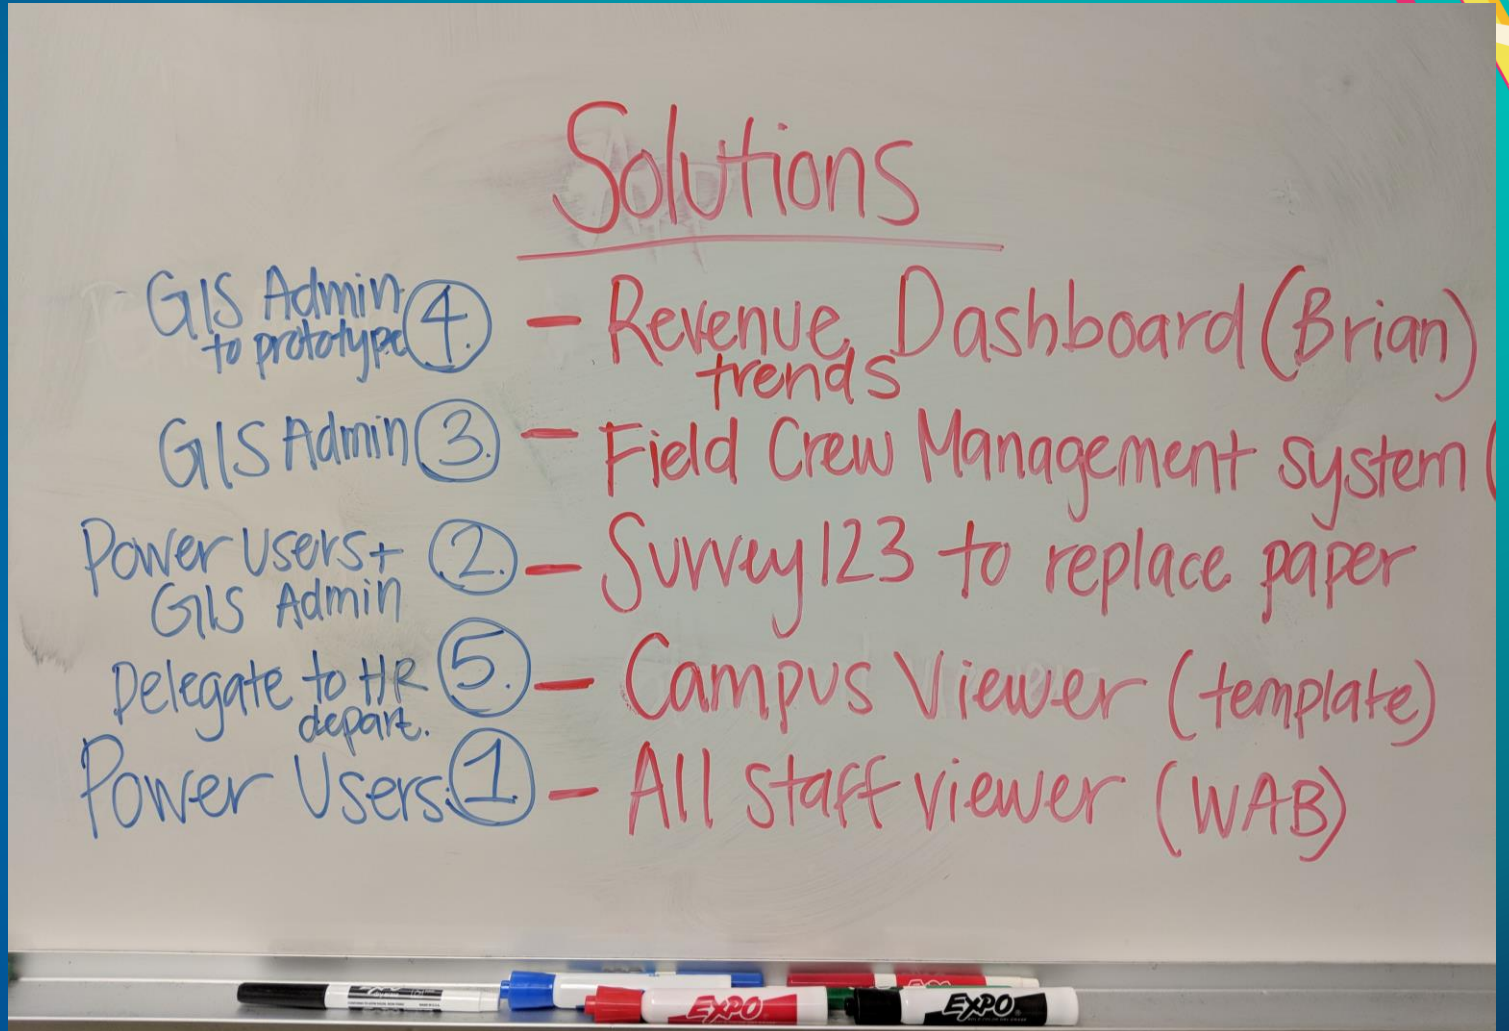 Solutions
GIS Admin to prototype 4. - Revenue trends Dashboard (Brian)
GIS Admin 3. - Field Crew Management system (
Power Users + GIS Admin 2. - Survey123 to replace paper
Delegate to HR depart. 5. - Campus Viewer (template)
Power Users 1. - All staff viewer (WAB)
EXPO
EXPO